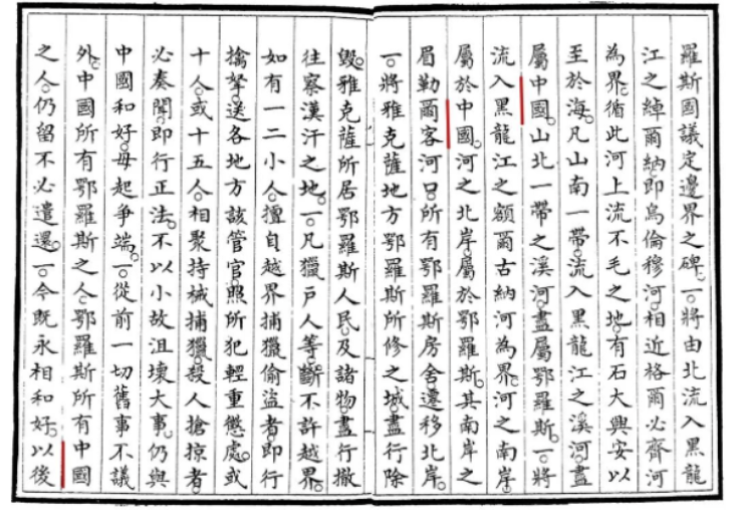 羅斯國議定邊界之碑。一將由北流入黑龍
江之綽爾納。即烏倫穆河相近格爾必齊河
為界。循此河上流不毛之地。有石大興安以
至於海。凡山南一帶。流入黑龍江之溪河。盡
屬中國。山北一帶之溪河。盡屬鄂羅斯。一將
流入黑龍江之額爾古納河為界。河之南岸。
屬於中國。河之北岸。屬於鄂羅斯。其南岸之
眉勒爾客河口。所有鄂羅斯房舍。遷移北岸。
一。將雅克薩地方鄂羅斯所修之城。盡行除
毀。雅克薩所居鄂羅斯人民。及諸物。盡行撤
往察漢汗之地。一。凡獵戶人等。斷不許越界。
如有一二小人。擅自越界捕獵偷盜者。即行
擒拏。送各地方該管官。照所犯輕重懲處。或
十人。或十五人。相聚持械捕獵。殺人搶掠者。
必奏聞。即行正法。不以小故沮壞大事。仍與
中國和好。毋起爭端。一。從前一切舊事不議
外。中國所有鄂羅斯之人。鄂羅斯所有中國
之人。仍留不必遣還。一。今既永相和好。以後